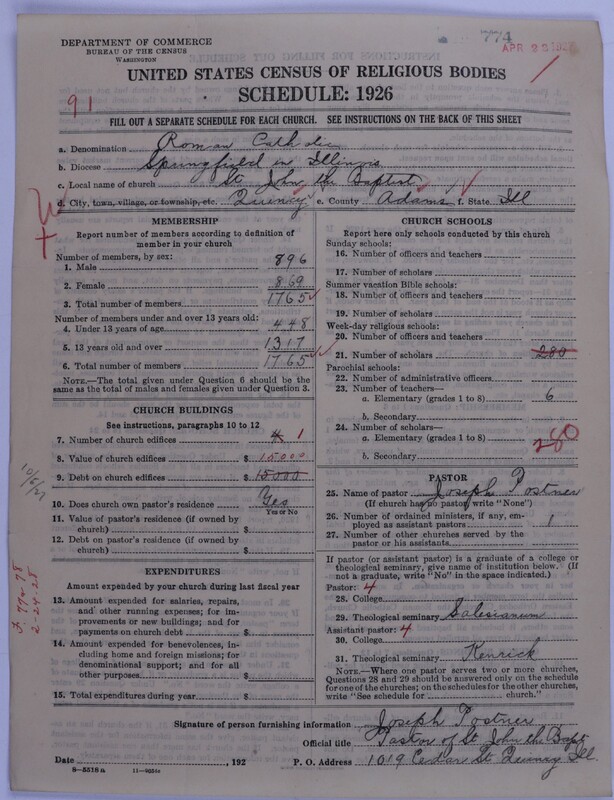 DEPARTMENT OF COMMERCE
BUREAU OF THE CENSUS
WASHINGTON
774
APR 23
UNITED STATES CENSUS OF RELIGIOUS BODIES
SCHEDULE: 1926
91
FILL OUT A SEPARATE SCHEDULE FOR EACH CHURCH. SEE INSTRUCTIONS ON THE BACK OF THIS SHEET
a. Denomination Roman Catholic
b. Diocese Springfield in Illinois
c. Local name of church St John the Baptist
d. City, town, village, or township, etc. Quincy e. County Adams f. State Ill
MEMBERSHIP
Report number of members according to definition of member in your church
Number of members, by sex:
1. Male 896
2. Female 869
3. Total number of members 1765
Number of members under and over 13 years old:
4. Under 13 years of age 448
5. 13 years old and over 1317
6. Total number of members 1765
NOTE.—The total given under Question 6 should be the same as the total of males and females given under Question 3.
CHURCH BUILDINGS
See instructions, paragraphs 10 to 12
7. Number of church edifices 1
8. Value of church edifices $ 15000
9. Debt on church edifices $ 15000
10/6/27
10. Does church own pastor's residence Yes
Yes or No
11. Value of pastor's residence (if owned by church) $
12. Debt on pastor's residence (if owned by church) $
EXPENDITURES
Amount expended by your church during last fiscal year
13. Amount expended for salaries, repairs, and other running expenses; for improvements or new buildings; and for payments on church debt $
14. Amount expended for benevolences, including home and foreign missions; for denominational support; and for all other purposes $
15. Total expenditures during year $
2-24-28
CHURCH SCHOOLS
Report here only schools conducted by this church
Sunday schools:
16. Number of officers and teachers
17. Number of scholars
Summer vacation Bible schools:
18. Number of officers and teachers
19. Number of scholars
Week-day religious schools:
20. Number of officers and teachers
21. Number of scholars 280
Parochial schools:
22. Number of administrative officers
23. Number of teachers—
a. Elementary (grades 1 to 8) 6
b. Secondary
24. Number of scholars—
a. Elementary (grades 1 to 8) 280
b. Secondary
PASTOR
25. Name of pastor Joseph Postner
(If church has no pastor, write "None")
26. Number of ordained ministers, if any, employed as assistant pastors 1
27. Number of other churches served by the pastor or his assistants
If pastor (or assistant pastor) is a graduate of a college or theological seminary, give name of institution below. (If not a graduate, write "No" in the space indicated.)
Pastor: 4
28. College
29. Theological seminary Salesianum
Assistant pastor: 4
30. College
31. Theological seminary Kenrick
NOTE.—Where one pastor serves two or more churches, Questions 28 and 29 should be answered only on the schedule for one of the churches; on the schedules for the other churches, write "See schedule for church."
Signature of person furnishing information Joseph Postner
Official title Pastor of St John the Bapti
Date , 192
P. O. Address 1019 Cedar St Quincy Ill.
8-5518 a 11-9051